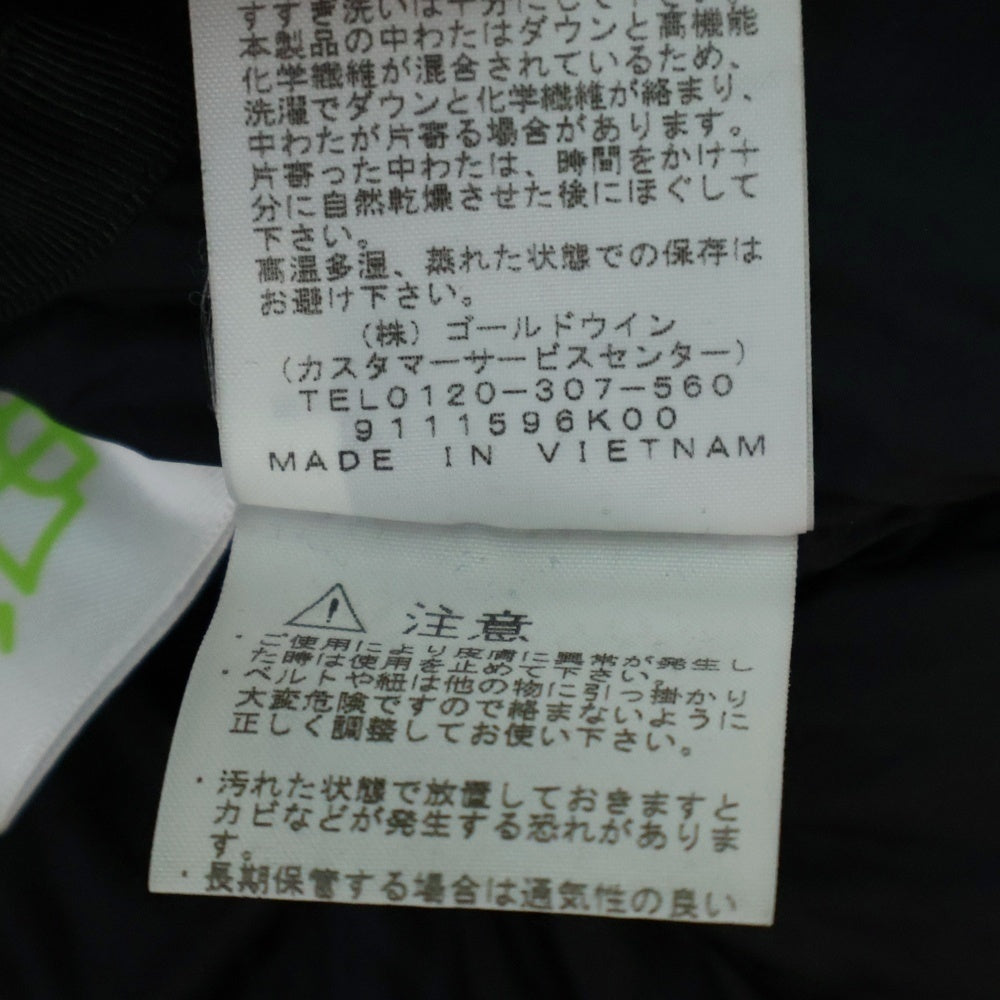 すすぎ洗いは十分にして下さい。
本製品の中わたはダウンと高機能
化学繊維が混合されているため、
洗濯でダウンと化学繊維が絡まり、
中わたが片寄る場合があります。
片寄った中わたは、時間をかけ十
分に自然乾燥させた後にほぐして
下さい。
高温多湿、蒸れた状態での保存は
お避け下さい。
(株) ゴールドウイン
(カスタマーサービスセンター)
TEL0120-307-560
9111596K00
MADE IN VIETNAM
注意
・ご使用により皮膚に異常が発生し
た時は使用を止めて下さい。
・ベルトや紐は他の物に引っ掛かり
大変危険ですので絡まないように
正しく調整してお使い下さい。
・汚れた状態で放置しておきますと
カビなどが発生する恐れがありま
す。
・長期保管する場合は通気性の良い